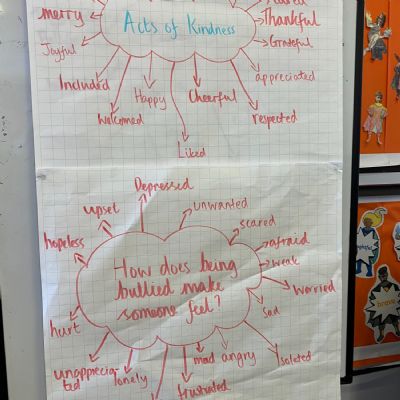 merry
Thankful
Acts of Kindness
Joyful
Grateful
Included
Happy
Cheerful
appreciated
Welcomed
respected
Liked
Depressed
upset
unwanted
scared
hopeless
afraid
How does being
bullied make
someone feel?
weak
worried
sad
hurt
mad
angry
isolated
unapprecia-
ted
lonely
frustrated
brave